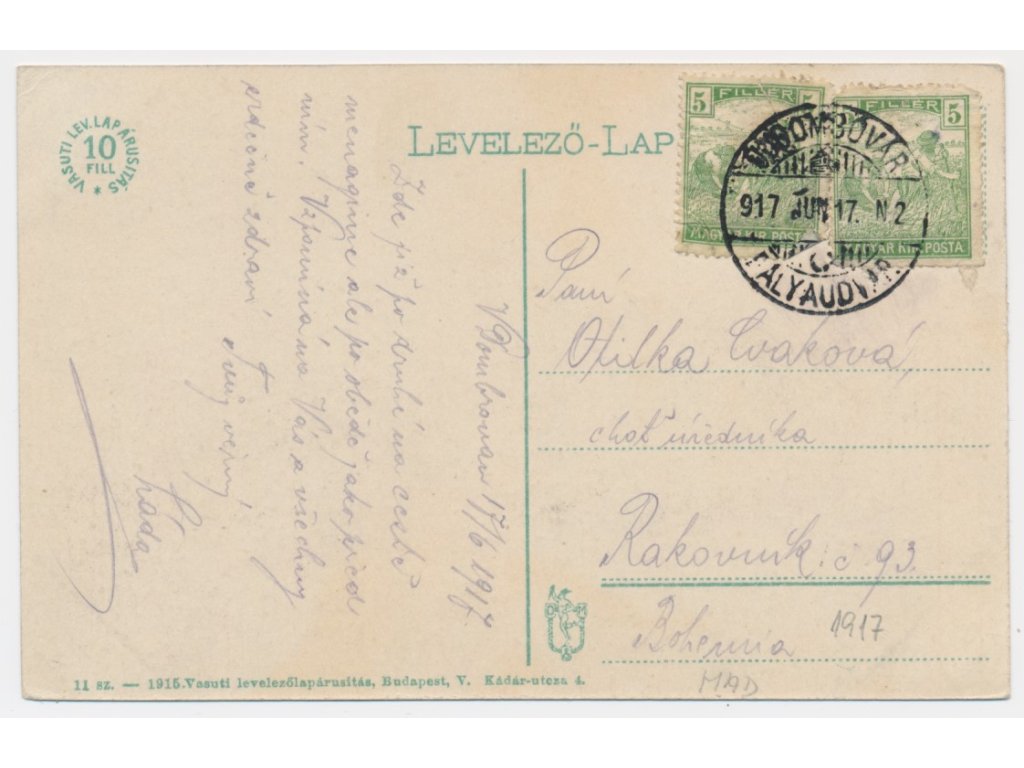 VASUTI LEV. LAPÁRUSITÁS *
10
FILL
LEVELEZŐ-LAP
5 FILLÉR
MAGYAR KIR. POSTA
FILLÉR 5
MAGYAR KIR. POSTA
DOMBÓVÁR
917 JUN 17. N 2
C
PÁLYAUDVAR
V Dombrovar 17/6 1917
Zde již po druhé na cestě
menagujeme ale po obědě jako
mím. Vzpomínám na Vás a všechny
srdečně zdraví
Tvůj věrný
Láďa
Paní
Otilka Cvaková,
choť úředníka
Rakovník č 93.
Bohemia
1917
MAD
11 sz. — 1915. Vasuti levelezőlapárusitás, Budapest, V. Kádár-utcza 4.